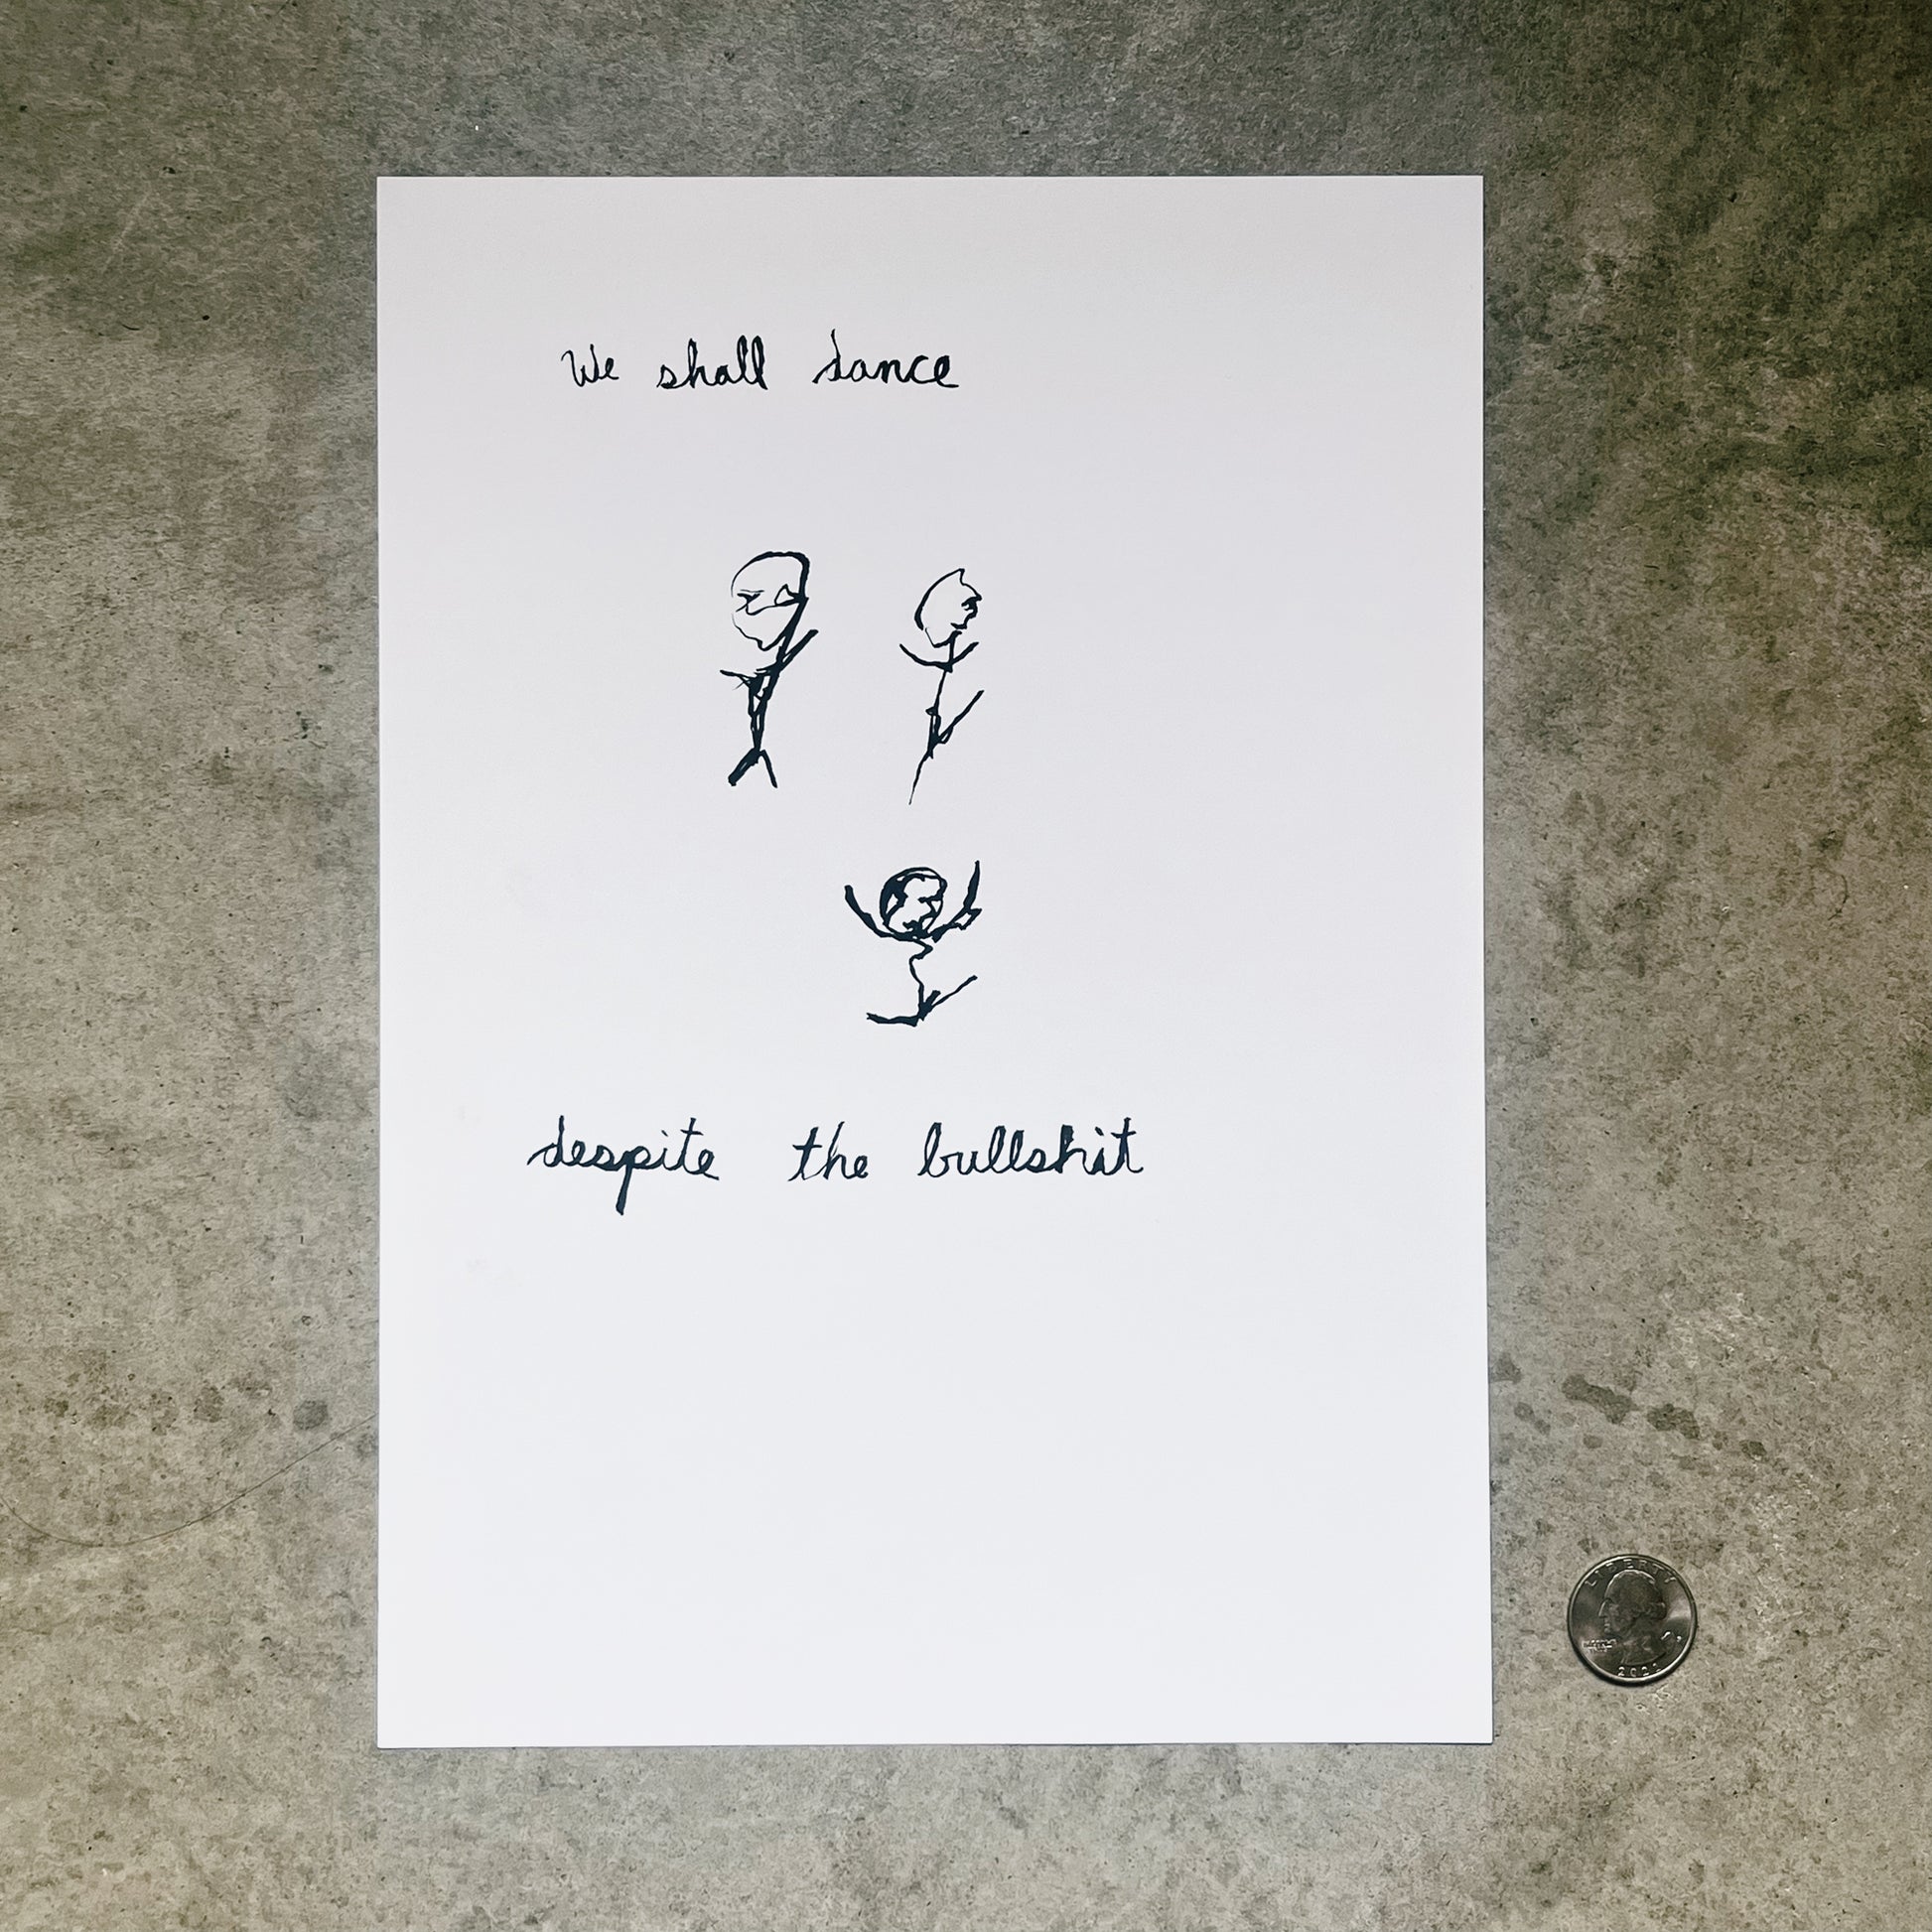 We shall dance
despite the bullshit
LIBERTY